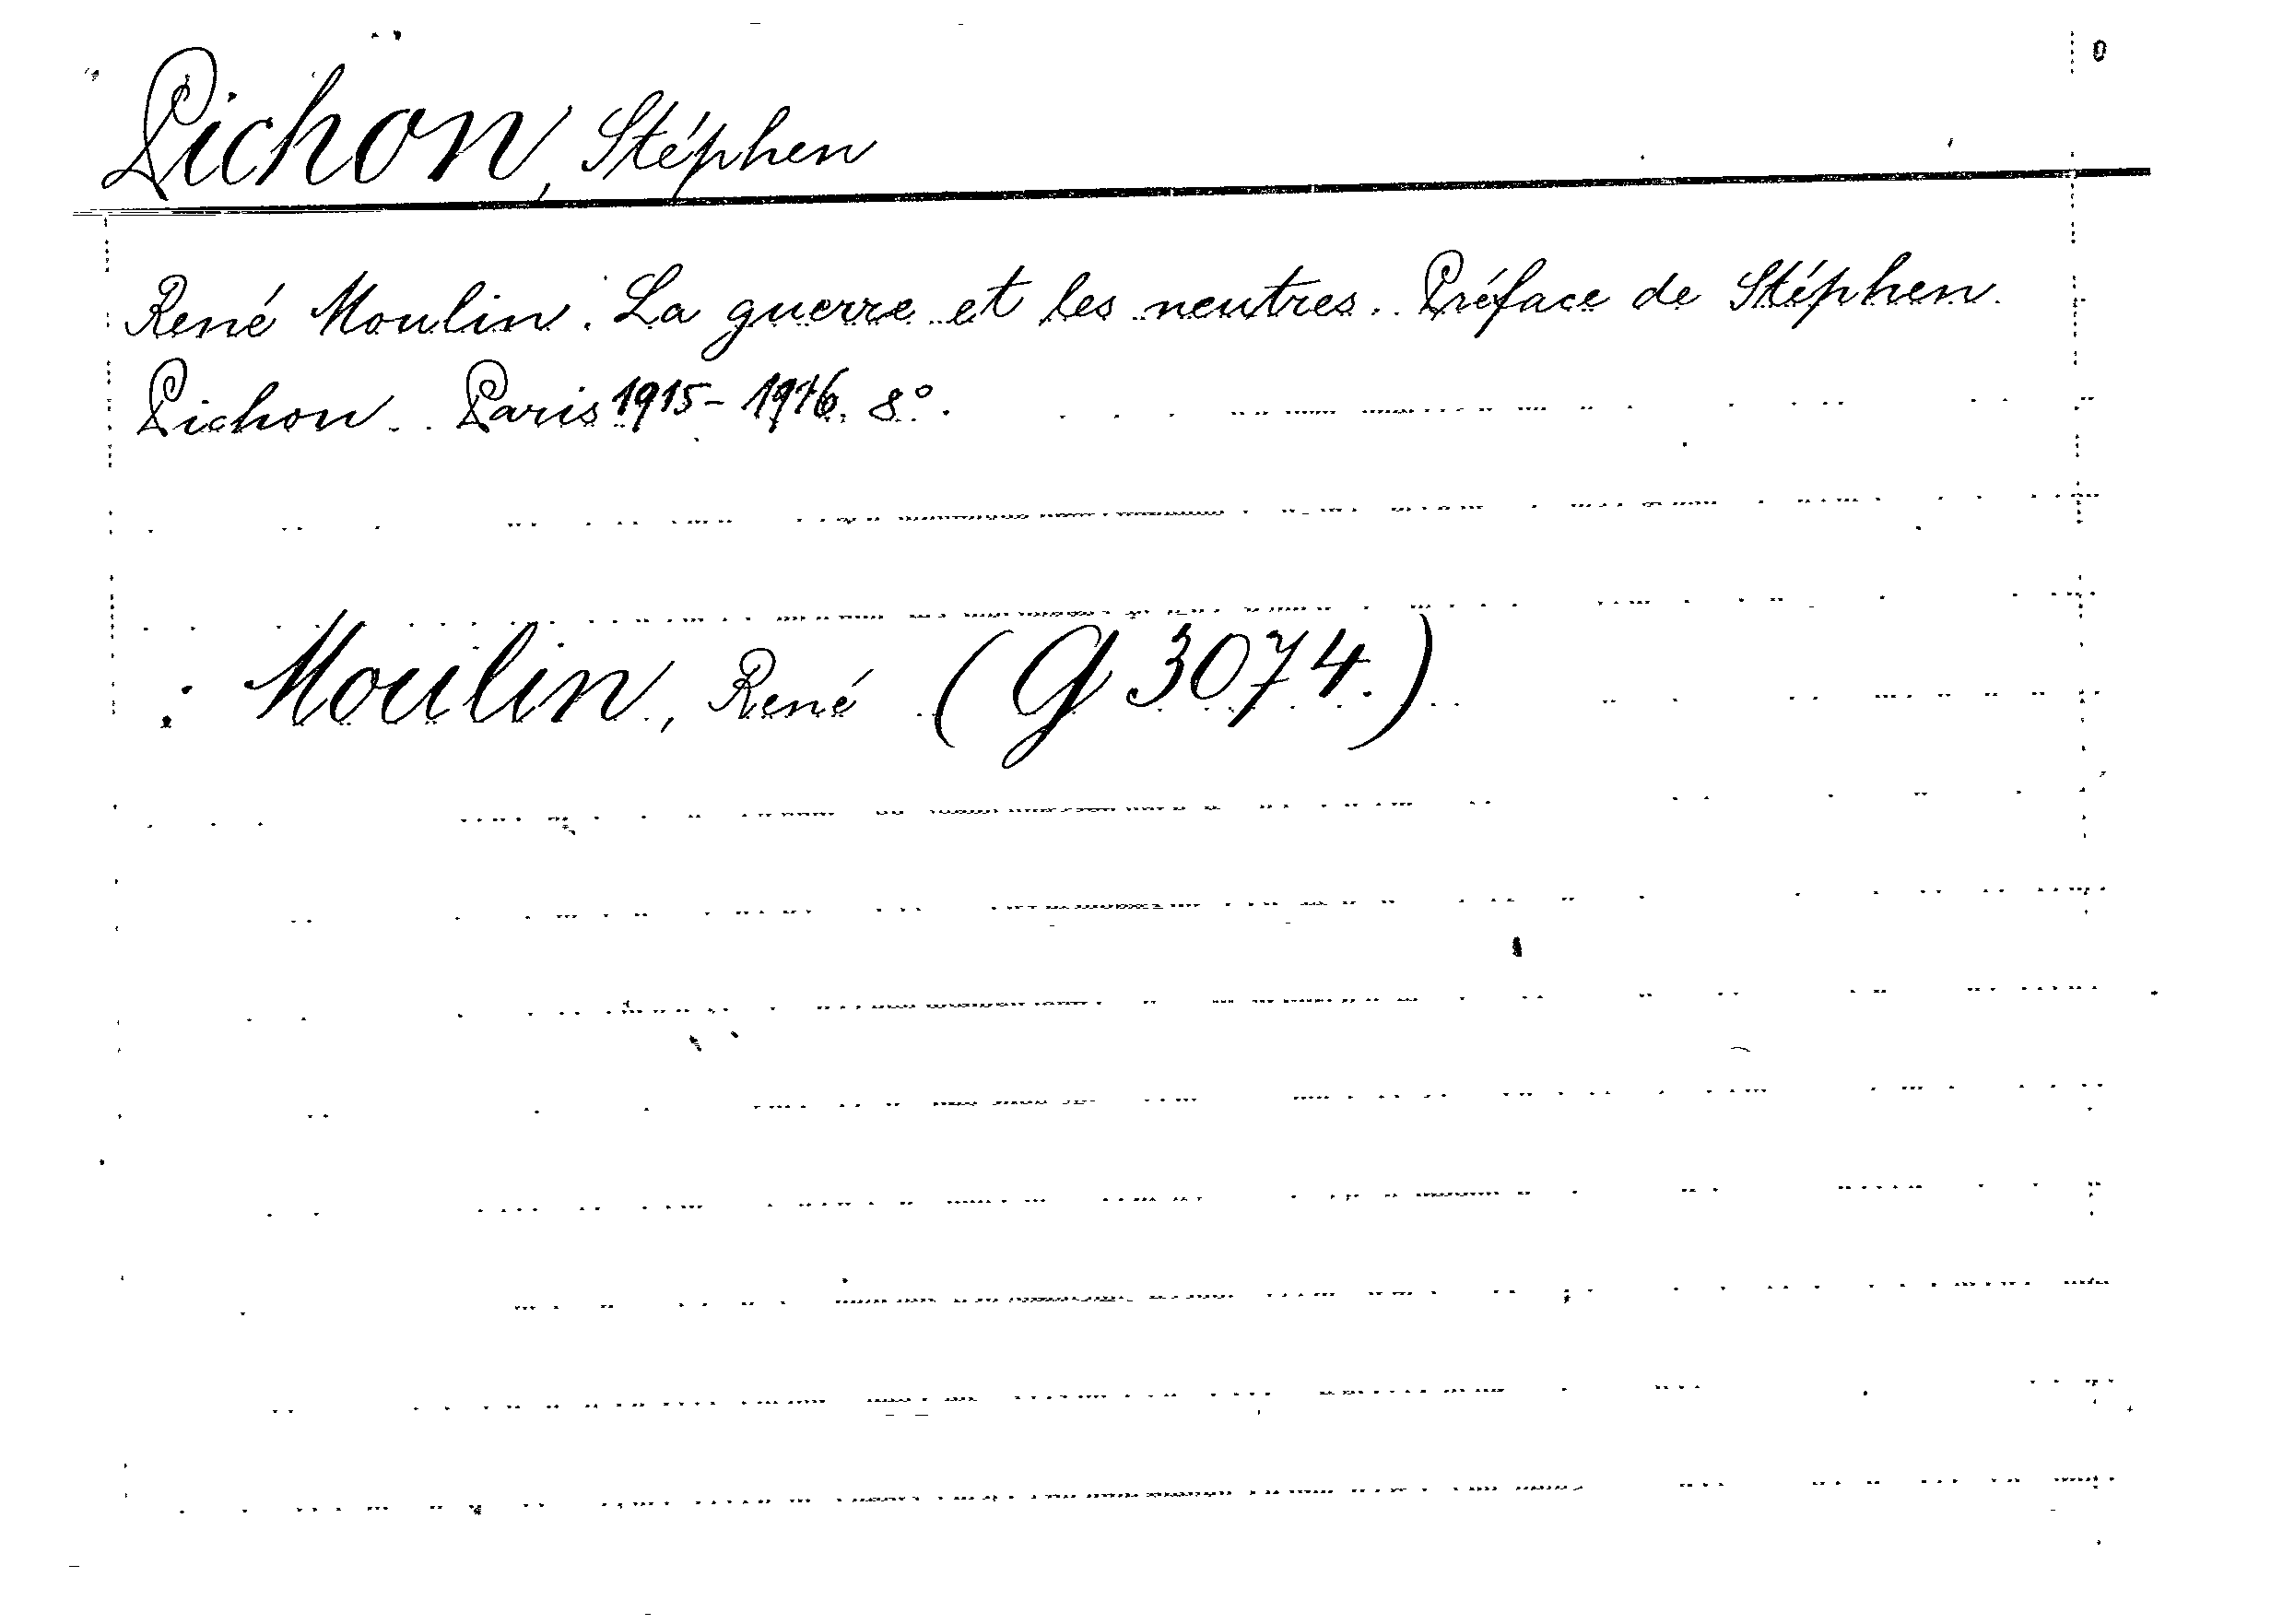 Pichon, Stéphen
René Moulin. La guerre et les neutres. Préface de Stéphen
Pichon. Paris 1915-1916. 8°.
: Moulin, René (G 3074.)